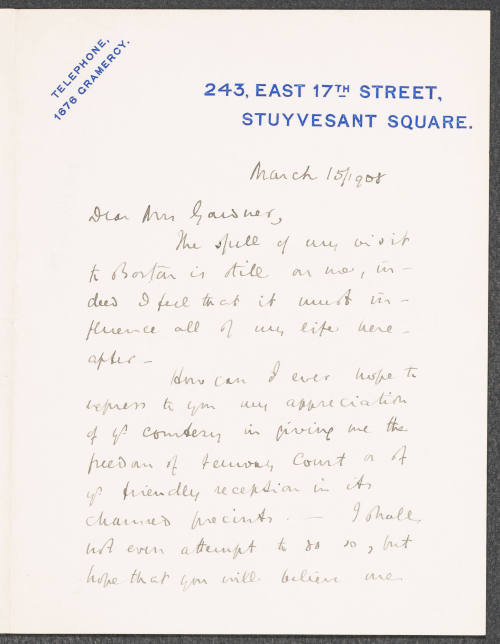 TELEPHONE,
1676 GRAMERCY.
243, EAST 17TH STREET,
STUYVESANT SQUARE.
March 15/1908
Dear Mrs Gardner,
The spell of my visit
to Boston is still on me, in-
deed I feel that it must in-
fluence all of my life here-
after -
How can I ever hope to
express to you my appreciation
of yr courtesy in giving me the
freedom of Fenway Court or of
yr friendly reception in its
charmed precincts. - I shall
not even attempt to do so, but
hope that you will believe me